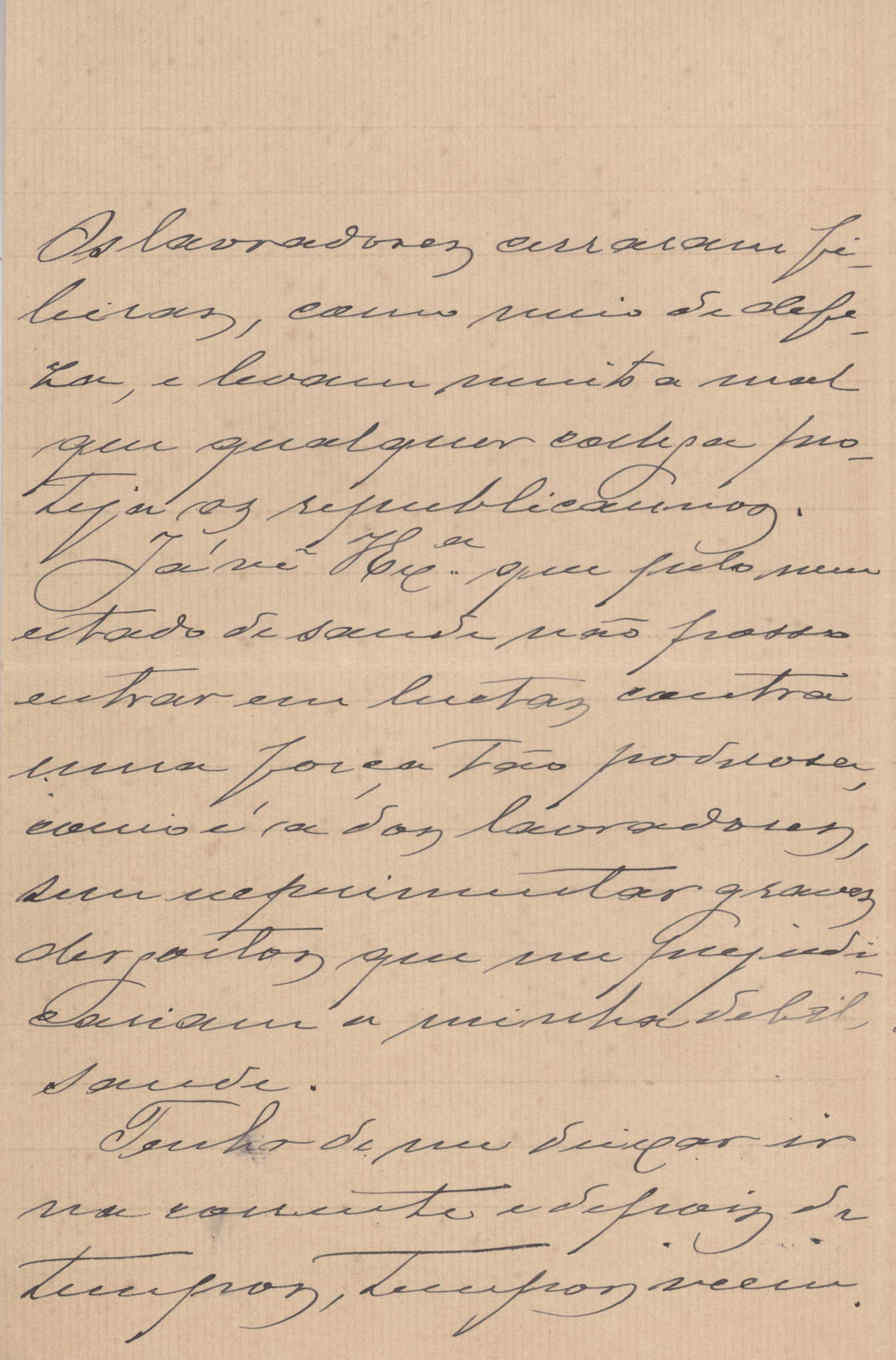 Os lavradores cerraram fi-
leiras, como meio de defe-
za, e levam muito a mal
que qualquer collega pro-
teja os republicanos.
Já vê V. Ex.ª que pelo meu
estado de saude não posso
entrar em luctas contra
uma força tão poderosa,
como é a dos lavradores,
sem experimentar graves
desgostos que me prejudi-
cariam a minha debil
saude.
Tenho de me deixar ir
na corrente e depois de
tempos, tempos veem.